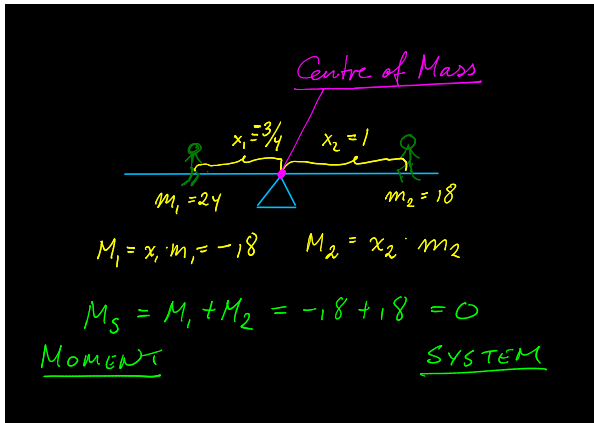 Centre of Mass
x₁ = -3/4 x₂ = 1
m₁ = 24 m₂ = 18
M₁ = x₁ · m₁ = -18 M₂ = x₂ · m₂
Ms = M₁ + M₂ = -18 + 18 = 0
MOMENT SYSTEM